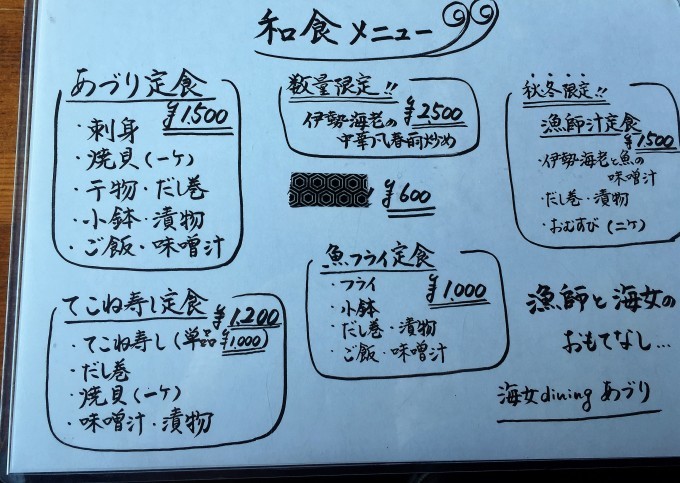 和食メニュー
あづり定食
¥1,500
・刺身
・焼貝(一ケ)
・干物・だし巻
・小鉢・漬物
・ご飯・味噌汁
てこね寿し定食
¥1,200
・てこね寿し(単品¥1,000)
・だし巻
・焼貝(一ケ)
・味噌汁・漬物
数量限定!!
¥2,500
伊勢海老の
中華風春雨炒め
¥600
魚フライ定食
¥1,000
・フライ
・小鉢
・だし巻・漬物
・ご飯・味噌汁
秋冬限定!!
漁師汁定食
¥1500
・伊勢海老と魚の
味噌汁
・だし巻・漬物
・おむすび(二ケ)
漁師と海女の
おもてなし…
海女diningあづり